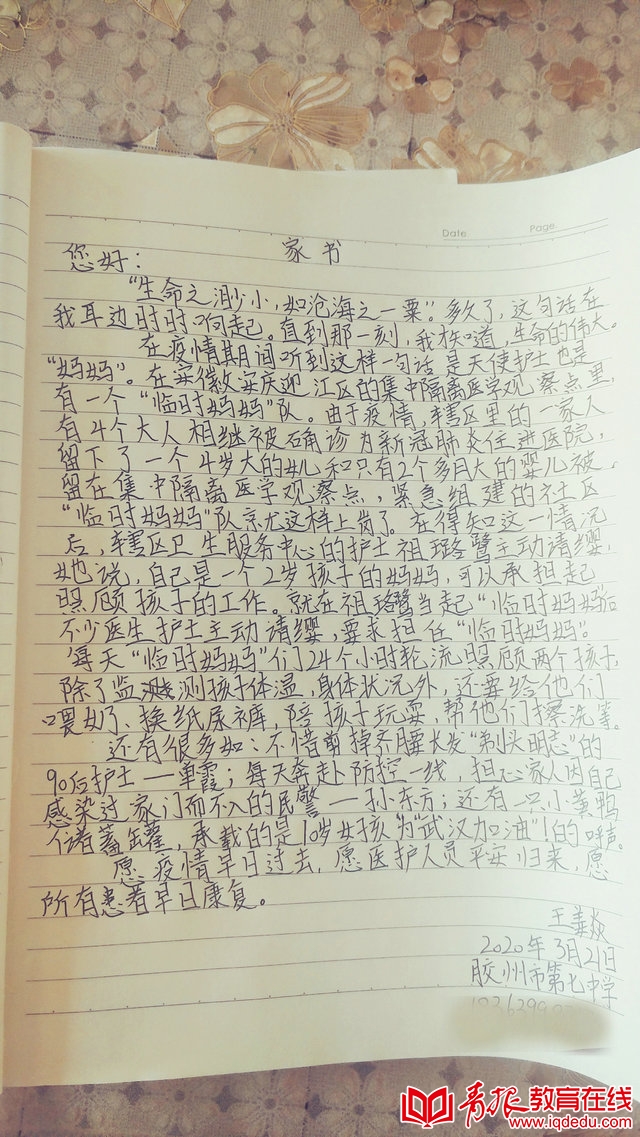 Date Page
家书
您好：
“生命之渺小，如沧海之一粟”。多久了，这句话在
我耳边时时响起。直到那一刻，我才知道，生命的伟大。
在疫情期间听到这样一句话是天使护士也是
“妈妈”。在安徽安庆迎江区的集中隔离医学观察点里，
有一个“临时妈妈”队。由于疫情，辖区里的一家人
有4个大人相继被确诊为新冠肺炎住进医院，
留下了一个4岁大的女儿和只有2个多月大的婴儿被
留在集中隔离医学观察点，紧急组建的社区
“临时妈妈”队就这样上岗了。在得知这一情况
后，辖区卫生服务中心的护士祖璐鹭主动请缨，
她说，自己是一个2岁孩子的妈妈，可以承担起
照顾孩子的工作。就在祖璐鹭当起“临时妈妈后
不少医生护士主动请缨，要求担任“临时妈妈”。
每天“临时妈妈”们24个小时轮流照顾两个孩子，
除了监测孩子体温，身体状况外，还要给他们
喂奶、换纸尿裤，陪孩子玩耍，帮他们擦洗等。
还有很多如：不惜剪掉齐腰长发“剃头明志”的
90后护士—单霞；每天奔赴防控一线，担心家人因自己
感染过家门而不入的民警—孙东方；还有一只小黄鸭
储蓄罐，承载的是10岁女孩“为“武汉加油”！的呼声。
愿疫情早日过去，愿医护人员平安归来，愿
所有患者早日康复。
2020年3月21日
胶州市第七中学
青报教育在线
www.iqdedu.com